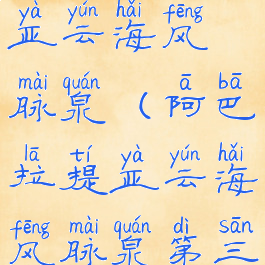 yà yún hǎi fēng
亚云海风
mài quán ā bā
脉泉(阿巴
lā tí yà yún hǎi
拉提亚云海
fēng mài quán dì sān
风脉泉第三